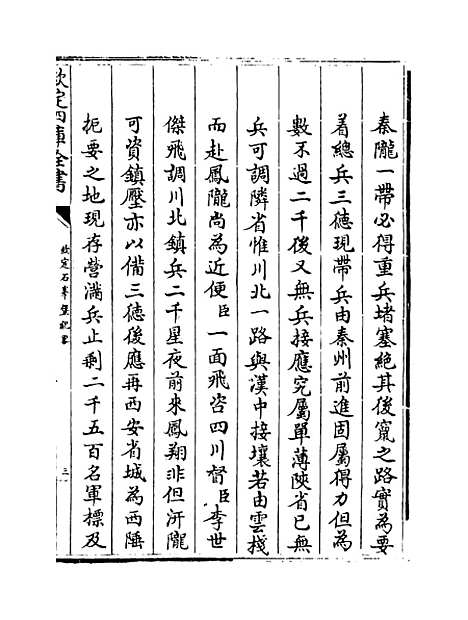 秦隴一帶必得重兵堵塞絶其後竄之路實為要
着總兵三徳現帶兵由秦州前進固屬得力但為
數不過二千後又無兵接應究屬單薄陜省已無
兵可調隣省惟川北一路與漢中接壤若由雲棧
而赴鳳隴尚為近便臣一面飛咨四川督臣李世
傑飛調川北鎮兵二千星夜前來鳳翔非但汧隴
可資鎮壓亦以備三徳後應再西安省城為西陲
扼要之地現存營滿兵止剩二千五百名軍標及
欽定四庫全書
欽定石峯堡紀畧